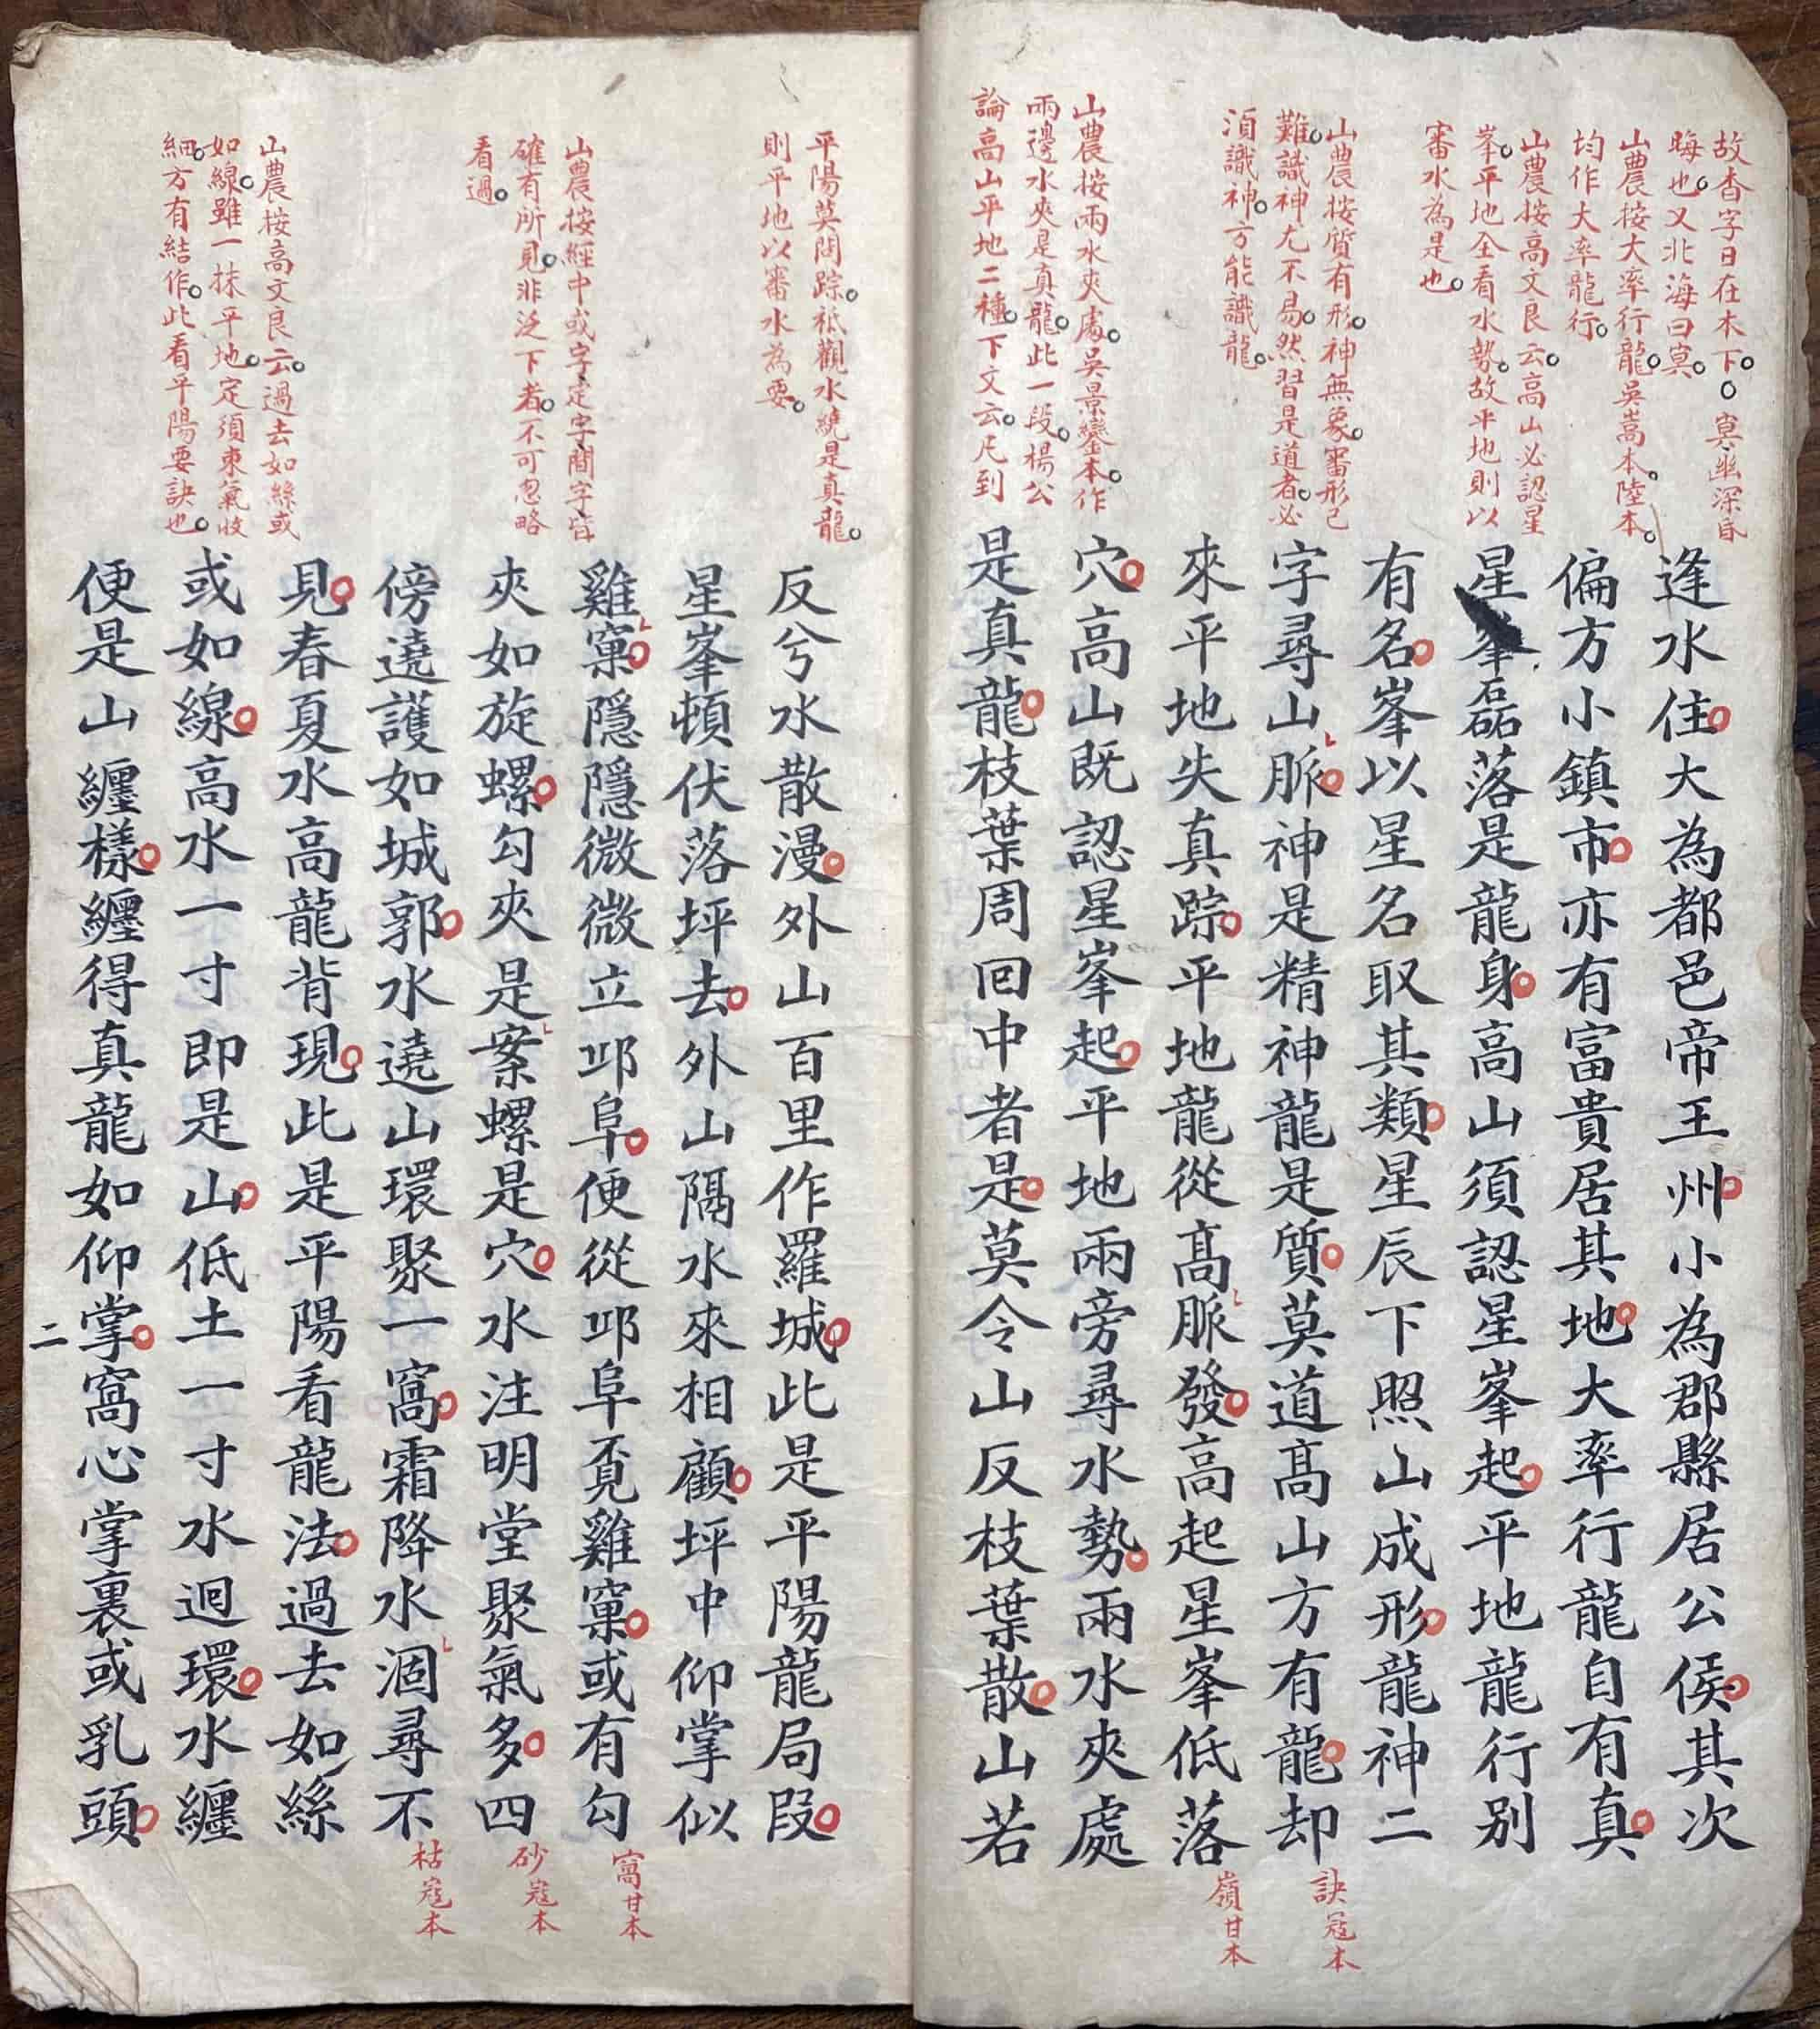 故杳字日在木下。冥、幽深昏
晦也。又北海曰冥。
山農按大率行龍。吳嵩本。陸本。
均作大率龍行。
山農按高文良云。高山必認星
峯。平地全看水勢。故平地則以
審水為是也。
山農按質有形。神無象。審形已
難。識神尤不易。然習是道者。必
須識神。方能識龍。
山農按兩水夾處。吳景鸞本。作
兩邊水夾是真龍。此一段。楊公
論高山平地二種。下文云。凡到
逢水住。大為都邑帝王州。小為郡縣居公侯。其次
偏方小鎮市。亦有富貴居其地。大率行龍自有真。
星峯磊落是龍身。高山須認星峯起。平地龍行别
有名。峯以星名取其類。星辰下照山成形。龍神二
字尋山脈。神是精神龍是質。莫道高山方有龍。却
來平地失真踪。平地龍從高脈發。高起星峯低落
穴。高山既認星峯起。平地兩旁尋水勢。兩水夾處
是真龍。枝葉周回中者是。莫令山反枝葉散。山若
訣寇本
嶺甘本
平陽莫問踪。祗觀水繞是真龍。
則平地以審水為要。
山農按經中或字、定字、間字、皆
確有所見。非泛下者。不可忽略
看過。
山農按高文良云。過去如絲或
如線。雖一抹平地。定須束氣收
細。方有結作。此看平陽要訣也。
反兮水散漫。外山百里作羅城。此是平陽龍局段。
星峯頓伏落坪去。外山隔水來相顧。坪中仰掌似
雞窠。隱隱微微立邛阜。便從邛阜覓雞窠。或有勾
夾如旋螺。勾夾是案螺是穴。水注明堂聚氣多。四
傍遶護如城郭。水遶山環聚一窩。霜降水涸尋不
見。春夏水高龍背現。此是平陽看龍法。過去如絲
或如線。高水一寸即是山。低土一寸水迴環。水纏
便是山纏樣。纏得真龍如仰掌。窩心掌裏或乳頭。
窩甘本
砂寇本
枯寇本
二